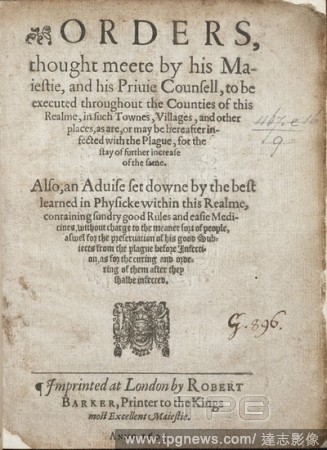 ORDERS,
thought meete by his Ma-
iestie, and his Priuie Counsell, to be
executed throughout the Counties of this
Realme, in such Townes, Villages, and other
places, as are, or may be hereafter in-
fected with the Plague, for the
stay of further increase
of the same.
Also, an Aduise set downe by the best
learned in Physicke within this Realme,
containing sundry good Rules and easie Medi-
cines, without charge to the meaner sort of people,
aswell for the preseruation of his good Sub-
iects from the plague before Infecti-
on, as for the curing and orde-
ring of them after they
shalbe infected.
G. 896.
¶ Imprinted at London by ROBERT
BARKER, Printer to the Kings
most Excellent Maiestie.
www.tpgnews.com/達志影像